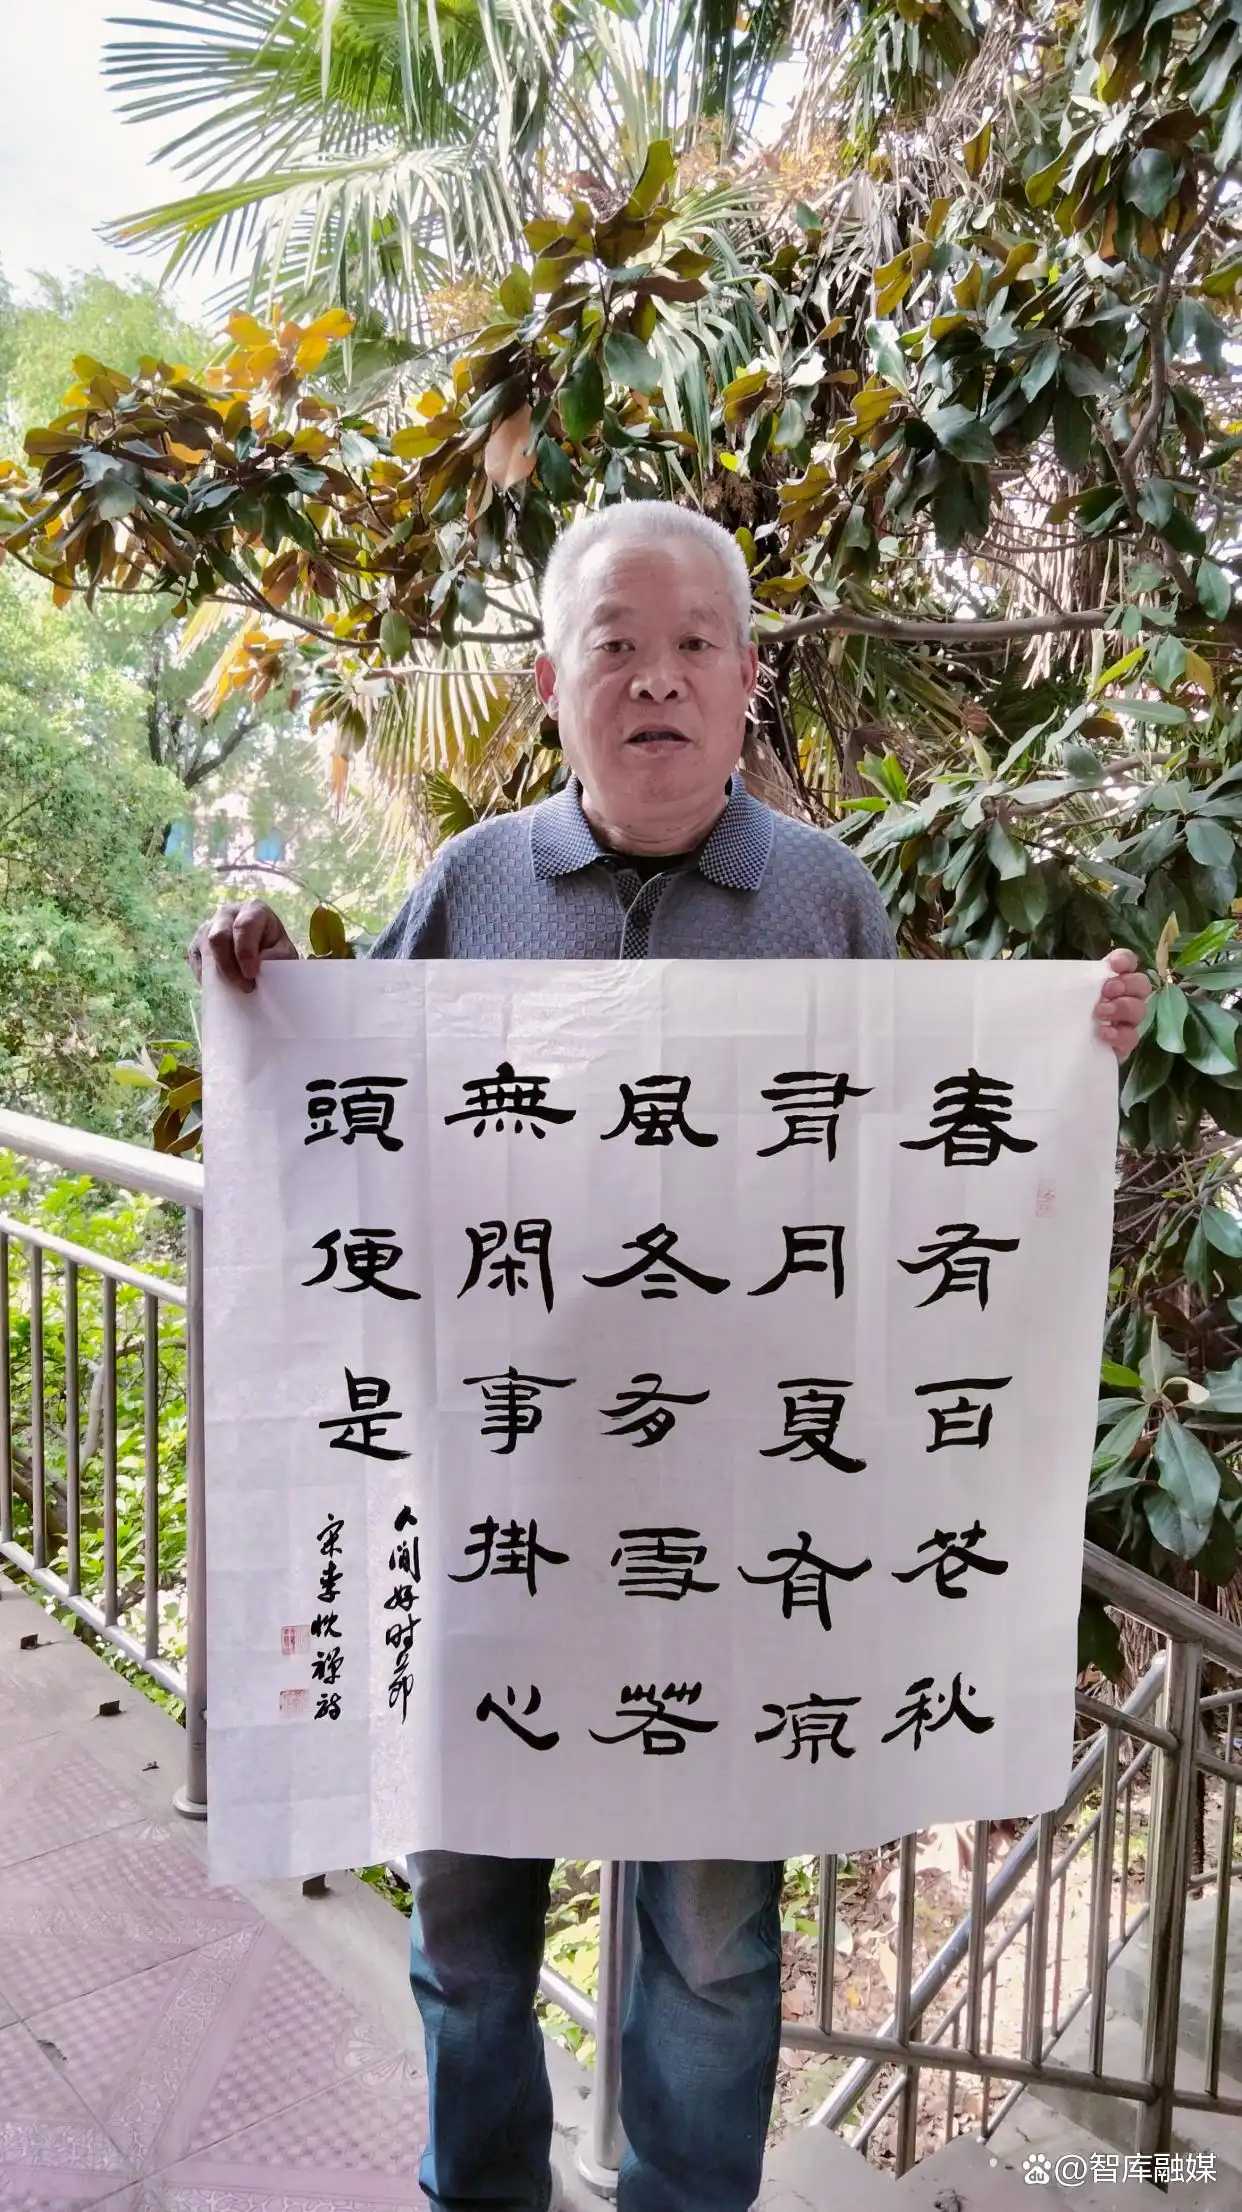 春有百花秋
有月夏有凉
風冬有雪若
無閑事掛心
頭便是
人间好时节
宋李悦禅詩
@智库融媒